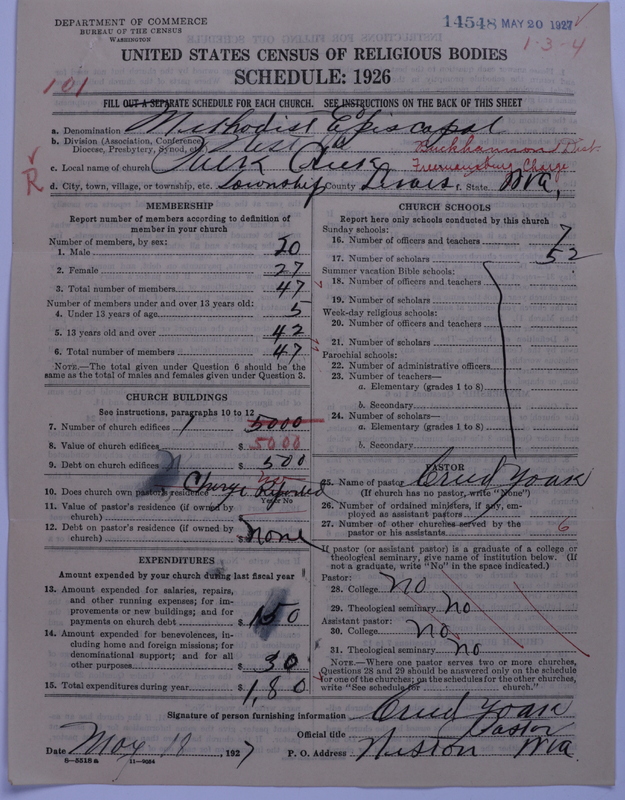 DEPARTMENT OF COMMERCE
BUREAU OF THE CENSUS
WASHINGTON
14548 MAY 20 1927
1-3-4
UNITED STATES CENSUS OF RELIGIOUS BODIES
SCHEDULE: 1926
101
FILL OUT A SEPARATE SCHEDULE FOR EACH CHURCH. SEE INSTRUCTIONS ON THE BACK OF THIS SHEET
a. Denomination Methodist Episcopal
b. Division (Association, Conference, Diocese, Presbytery, Synod, etc.) West Va Buckhannon Dist.
c. Local name of church Creek Freemansburg Charge
R
d. City, town, village, or township, etc. Township County Lewis f. State W Va,
MEMBERSHIP
Report number of members according to definition of member in your church
Number of members, by sex:
1. Male 20
2. Female 27
3. Total number of members 47
Number of members under and over 13 years old:
4. Under 13 years of age 5
5. 13 years old and over 42
6. Total number of members 47
NOTE.—The total given under Question 6 should be the same as the total of males and females given under Question 3.
CHURCH BUILDINGS
See instructions, paragraphs 10 to 12
7. Number of church edifices 1 5000
8. Value of church edifices $ 5000
9. Debt on church edifices $ 500
10. Does church own pastor's residence Charge Reported
Yes or No
11. Value of pastor's residence (if owned by church) $
12. Debt on pastor's residence (if owned by church) $ None
EXPENDITURES
Amount expended by your church during last fiscal year
13. Amount expended for salaries, repairs, and other running expenses; for improvements or new buildings; and for payments on church debt $ 150
14. Amount expended for benevolences, including home and foreign missions; for denominational support; and for all other purposes $ 30
15. Total expenditures during year $ 180
CHURCH SCHOOLS
Report here only schools conducted by this church
Sunday schools:
16. Number of officers and teachers 7
17. Number of scholars 52
Summer vacation Bible schools:
18. Number of officers and teachers
19. Number of scholars
Week-day religious schools:
20. Number of officers and teachers
21. Number of scholars
Parochial schools:
22. Number of administrative officers
23. Number of teachers—
a. Elementary (grades 1 to 8)
b. Secondary
24. Number of scholars—
a. Elementary (grades 1 to 8)
b. Secondary
PASTOR
25. Name of pastor Creed Yoak
(If church has no pastor, write "None")
26. Number of ordained ministers, if any, employed as assistant pastors
27. Number of other churches served by the pastor or his assistants 6
If pastor (or assistant pastor) is a graduate of a college or theological seminary, give name of institution below. (If not a graduate, write "No" in the space indicated.)
Pastor:
28. College No
29. Theological seminary No
Assistant pastor:
30. College No
31. Theological seminary No
NOTE.—Where one pastor serves two or more churches, Questions 28 and 29 should be answered only on the schedule for one of the churches; on the schedules for the other churches, write "See schedule for church."
Signature of person furnishing information Creed Yoak
Official title Pastor
Date May 18, 1927 P. O. Address W Va
8-5518 a 11-9054